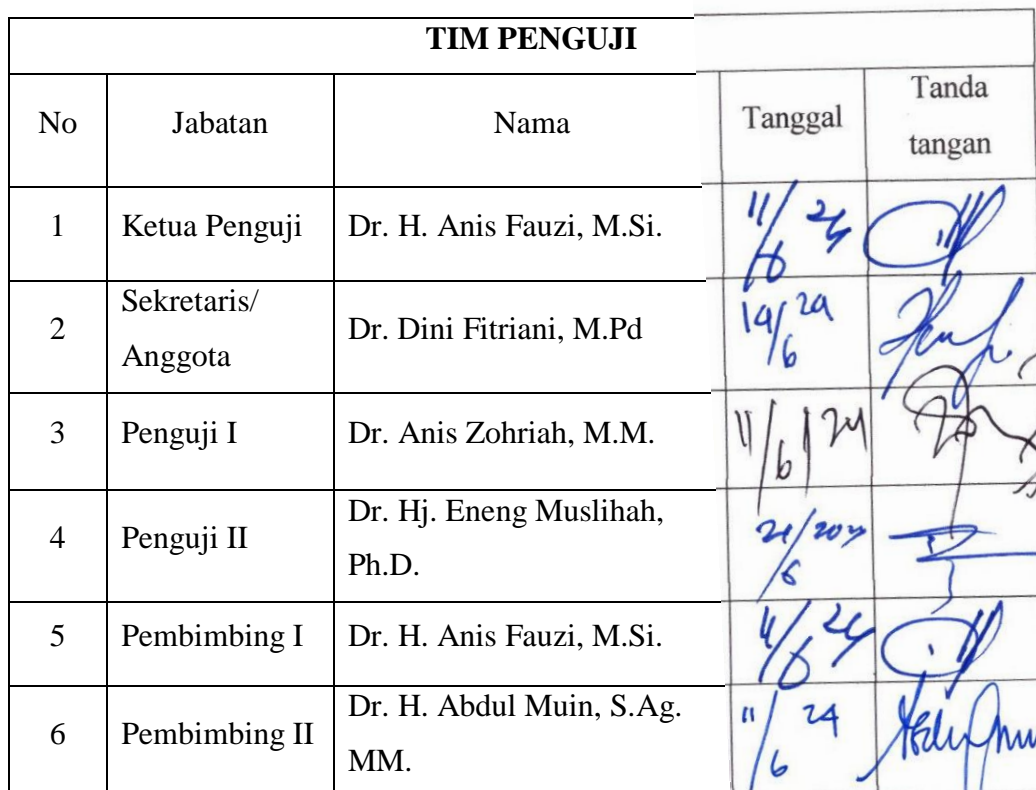 TIM PENGUJI
No Jabatan Nama Tanggal Tanda tangan
1 Ketua Penguji Dr. H. Anis Fauzi, M.Si. 11/6 24
2 Sekretaris/ Anggota Dr. Dini Fitriani, M.Pd 6
3 Penguji I Dr. Anis Zohriah, M.M. 11/6/24
4 Penguji II Dr. Hj. Eneng Muslihah, Ph.D. /6
5 Pembimbing I Dr. H. Anis Fauzi, M.Si. 24
6 Pembimbing II Dr. H. Abdul Muin, S.Ag. MM. 11/6 24